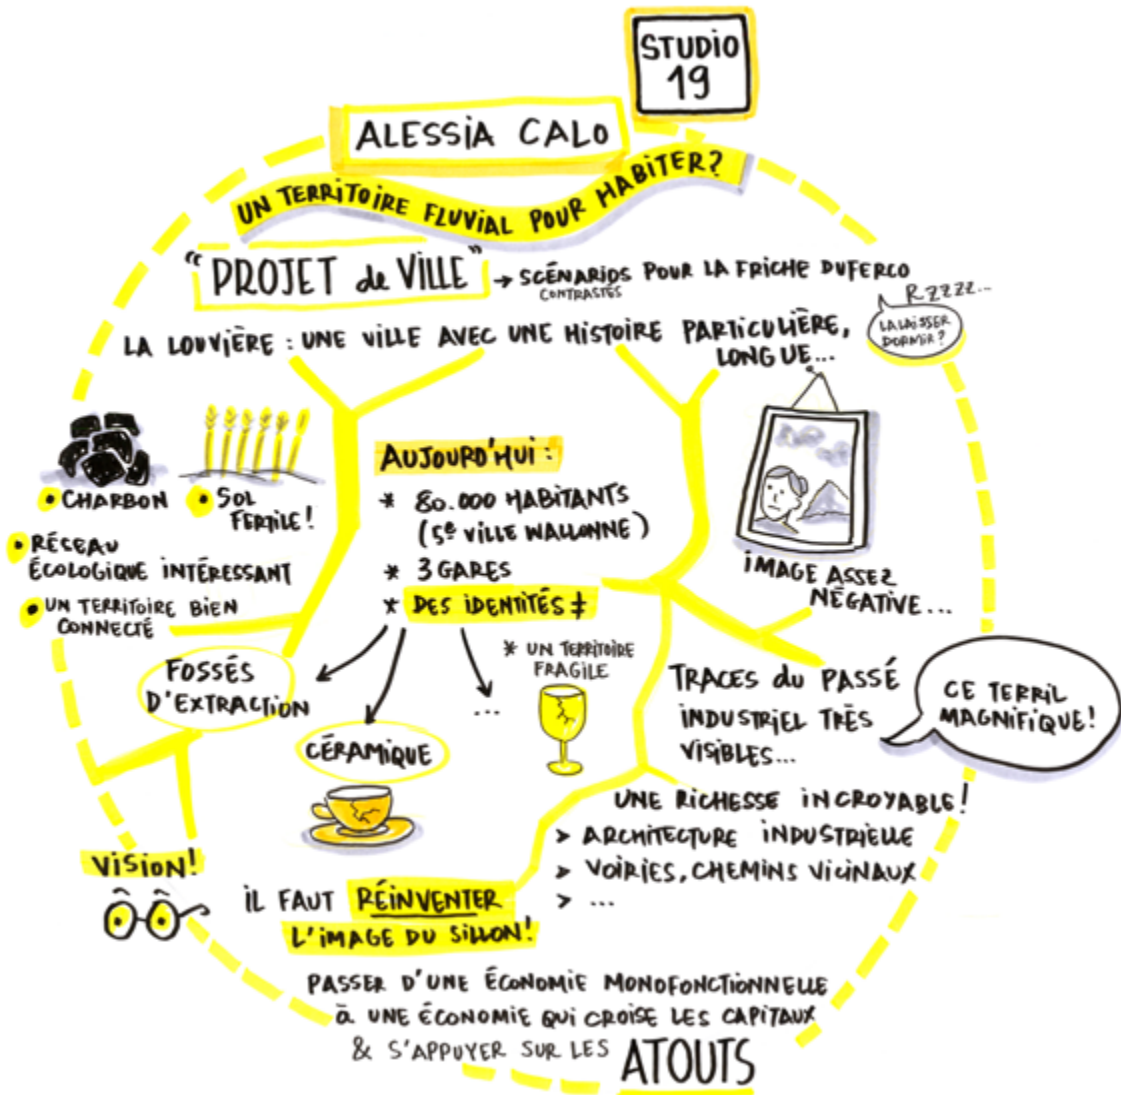 STUDIO
19
ALESSIA CALO
UN TERRITOIRE FLUVIAL POUR HABITER?
"PROJET de VILLE" → SCÉNARIOS POUR LA FRICHE DUFERCO
CONTRASTÉS
RZZZZ...
LA LAISSER
DORMIR?
LA LOUVIÈRE : UNE VILLE AVEC UNE HISTOIRE PARTICULIÈRE,
LONGUE...
• CHARBON
• SOL
FERTILE!
• RÉSEAU
ÉCOLOGIQUE INTÉRESSANT
• UN TERRITOIRE BIEN
CONNECTÉ
AUJOURD'HUI :
* 80.000 HABITANTS
(5e VILLE WALLONNE)
* 3 GARES
* DES IDENTITÉS ≠
FOSSÉS
D'EXTRACTION
CÉRAMIQUE
...
* UN TERRITOIRE
FRAGILE
IMAGE ASSEZ
NÉGATIVE...
TRACES du PASSÉ
INDUSTRIEL TRÈS
VISIBLES...
CE TERRIL
MAGNIFIQUE!
UNE RICHESSE INCROYABLE!
> ARCHITECTURE INDUSTRIELLE
> VOIRIES, CHEMINS VICINAUX
> ...
VISION!
IL FAUT RÉINVENTER
L'IMAGE DU SILLON!
PASSER D'UNE ÉCONOMIE MONOFONCTIONNELLE
à UNE ÉCONOMIE QUI CROISE LES CAPITAUX
& S'APPUYER SUR LES ATOUTS